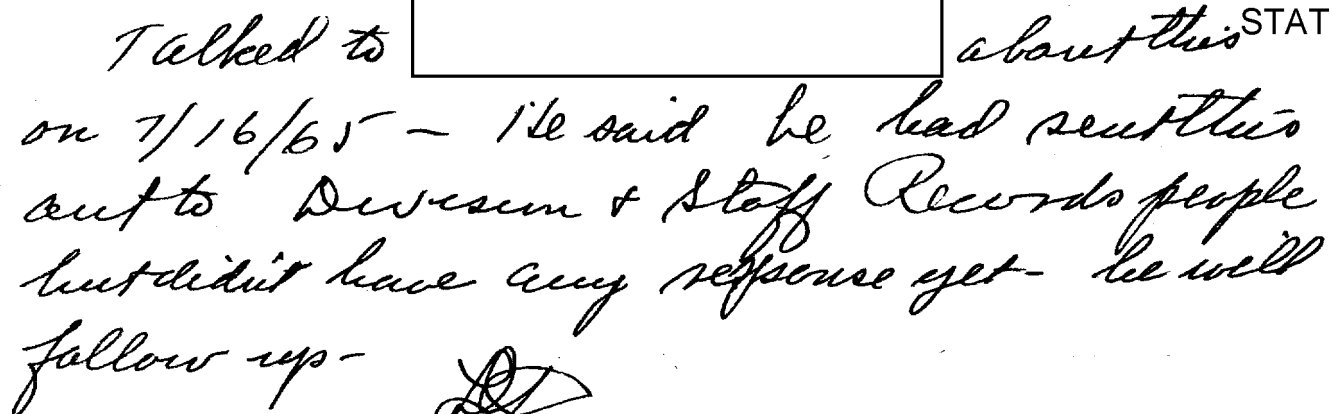 Talked to about this STAT
on 7/16/65 - He said he had sent this
out to Division & Staff Records people
but didn't have any response yet - he will
follow up -